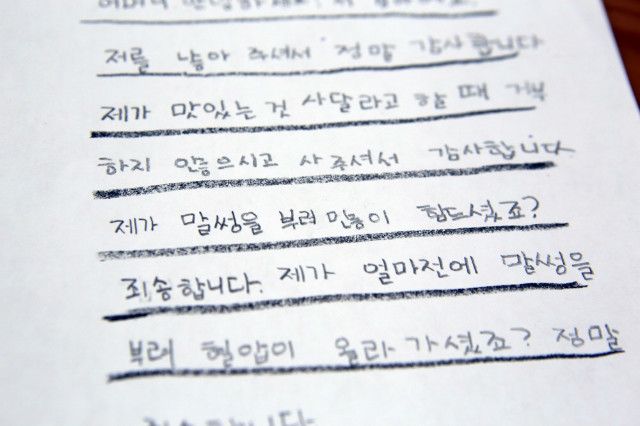 어머니 안녕하세요.
저를 낳아 주셔서 정말 감사합니다
제가 맛있는 것 사달라고 할 때 거부
하지 사 주셔서 감사합니다.
제가 말썽을 부려 힘드셨죠?
죄송합니다. 제가 얼마전에 말썽을
부려 혈압이 올라 가셨죠? 정말
죄송합니다